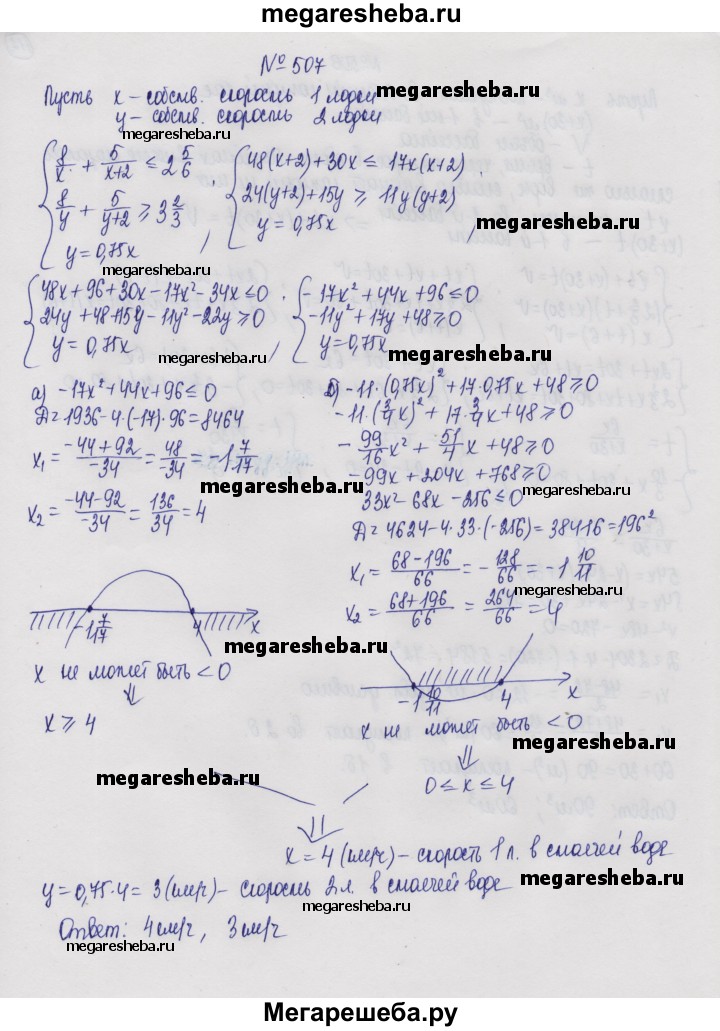 megaresheba.ru
№ 507
Пусть x – собств. скорость 1 лодки
megaresheba.ru
y – собств. скорость 2 лодки
megaresheba.ru
{ 8/x + 5/(x+2) ≤ 2 5/6
8/y + 5/(y+2) ≥ 3 2/3
y = 0,75x ,
{ 48(x+2)+30x ≤ 17x(x+2) .
24(y+2)+15y ≥ 11y(y+2)
y = 0,75x ,
megaresheba.ru
megaresheba.ru
{ 48x+96+30x-17x²-34x ≤ 0 .
24y+48+15y-11y²-22y ≥ 0
y = 0,75x ,
{ -17x²+44x+96 ≤ 0
-11y²+17y+48 ≥ 0
y = 0,75x
megaresheba.ru
megaresheba.ru
а) -17x²+44x+96 ≤ 0
Д = 1936-4·(-17)·96 = 8464
x₁ = (-44+92)/-34 = 48/-34 = -1 7/17
x₂ = (-44-92)/-34 = 136/34 = 4
megaresheba.ru
megaresheba.ru
б) -11·(0,75x)²+17·0,75x+48 ≥ 0
-11·(3/4x)²+17·3/4x+48 ≥ 0
-99/16x²+51/4x+48 ≥ 0
-99x+204x+768 ≥ 0
33x²-68x-256 ≤ 0
Д = 4624-4·33·(-256) = 38416 = 196²
x₁ = (68-196)/66 = -128/66 = -1 10/11
x₂ = (68+196)/66 = 264/66 = 4
megaresheba.ru
megaresheba.ru
-1 7/17 4 x
megaresheba.ru
x не может быть < 0
⇓
x ≥ 4
-1 10/11 4 x
megaresheba.ru
x не может быть < 0
megaresheba.ru
⇓
0 ≤ x ≤ 4
megaresheba.ru
⇓
x = 4 (км/ч) – скорость 1 л. в стоячей воде
y = 0,75·4 = 3 (км/ч) – скорость 2 л. в стоячей воде
megaresheba.ru
megaresheba.ru
Ответ: 4 км/ч , 3 км/ч
megaresheba.ru
Мегарешеба.ру